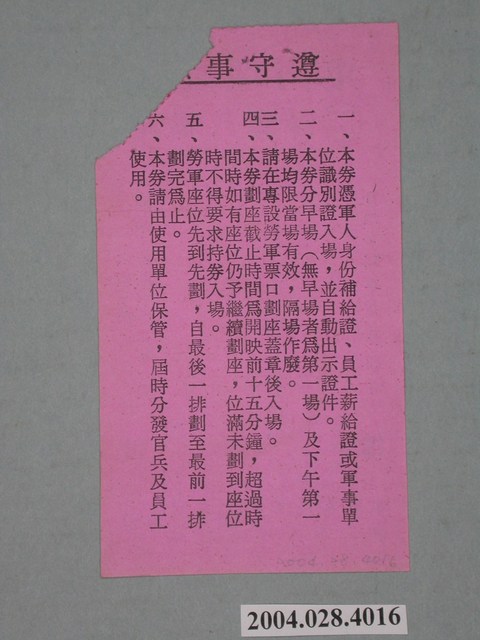 遵守事
一、本券憑軍人身份補給證、員工薪給證或軍事單
位識別證入場，並自動出示證件。
二、本券分早場（無早場者為第一場）及下午第一
場均限當場有效，隔場作廢。
三、請在專設勞軍票口劃座蓋章後入場。
四、本券劃座截止時間為開映前十五分鐘，超過時
間時如有座位仍予繼續劃座，位滿未劃到座位
時不得要求持券入場。
五、勞軍座位先到先劃，自最後一排劃至最前一排
劃完為止。
六、本券請由使用單位保管，屆時分發官兵及員工
使用。
2004.028.4016